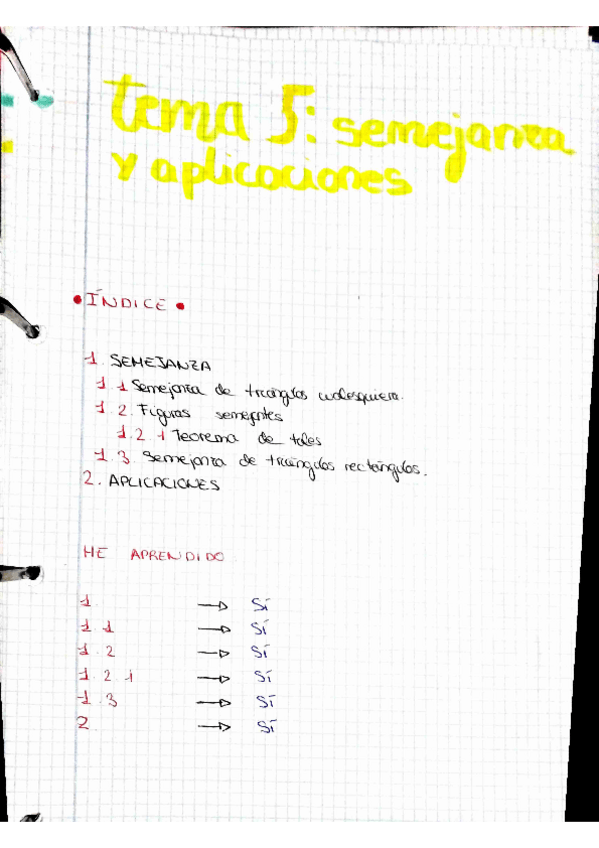 tema 5: semejanza
y aplicaciones
• ÍNDICE •
1. SEMEJANZA
1.1 Semejanza de triángulos cualesquiera.
1.2. Figuras semejantes
1.2.1 Teorema de tales
1.3. Semejanza de triángulos rectángulos.
2. APLICACIONES
HE APRENDIDO
1. → Sí
1.1 → Sí
1.2 → Sí
1.2.1 → Sí
1.3 → Sí
2. → Sí